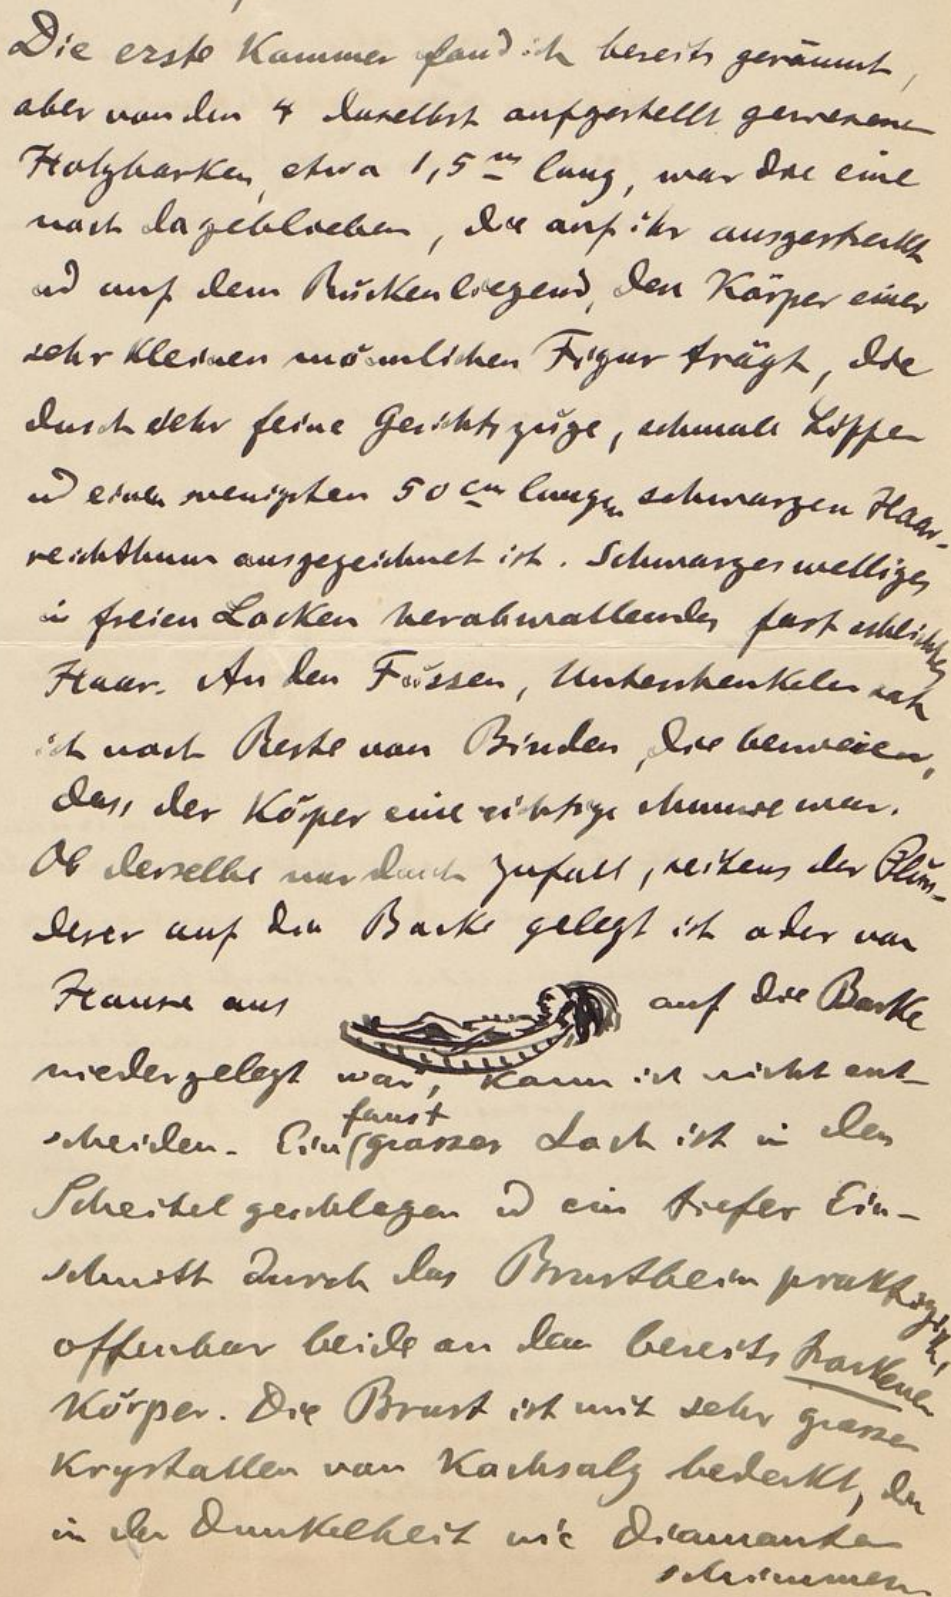 Die erste Kammer fand ich bereits geräumt,
aber von den 4 daselbst aufgestellt gewesenen
Holzbarken, etwa 1,5 m lang, war die eine
noch dageblieben, die auf ihr ausgestreckt
und auf dem Rücken liegend, den Körper einer
sehr kleinen männlichen Figur trägt, die
durch sehr feine Gesichtszüge, schmale Lippen
und einen wenigsten 50 cm langen schwarzen Haar-
reichthum ausgezeichnet ist. Schwarzes welliges
in freien Locken herabwallendes fast schlichtes
Haar. An den Füssen, Unterschenkeln sah
ich noch Reste von Binden, die beweisen,
dass der Körper eine richtige Mumie war.
Ob derselbe nur durch Zufall, seitens der Plün-
derer auf die Barke gelegt ist oder von
Hause aus auf die Barke
niedergelegt war, kann ich nicht ent-
scheiden. Ein faust
grosser Loch ist in den
Scheitel geschlagen und ein tiefer Ein-
schnitt durch das Brustbein praktizirt,
offenbar beide an dem bereits trockenen
Körper. Die Brust ist mit sehr grossen
Krystallen von Kochsalz bedeckt, die
in der Dunkelheit wie Diamanten
schimmern